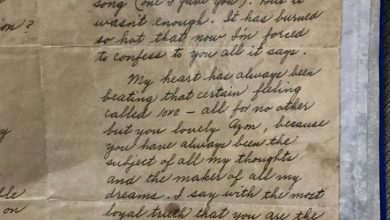 song (one I gave you). This it
on? wasn't enough. It has burned
so hot that now I'm forced
to confess to you all it says.
My heart has always been
beating that certain feeling
called love – all for no other
but you lovely Ayon, because
you have always been the
subject of all my thoughts
and the maker of all my
dreams. I say with the most
loyal truth that you are the
ble
on